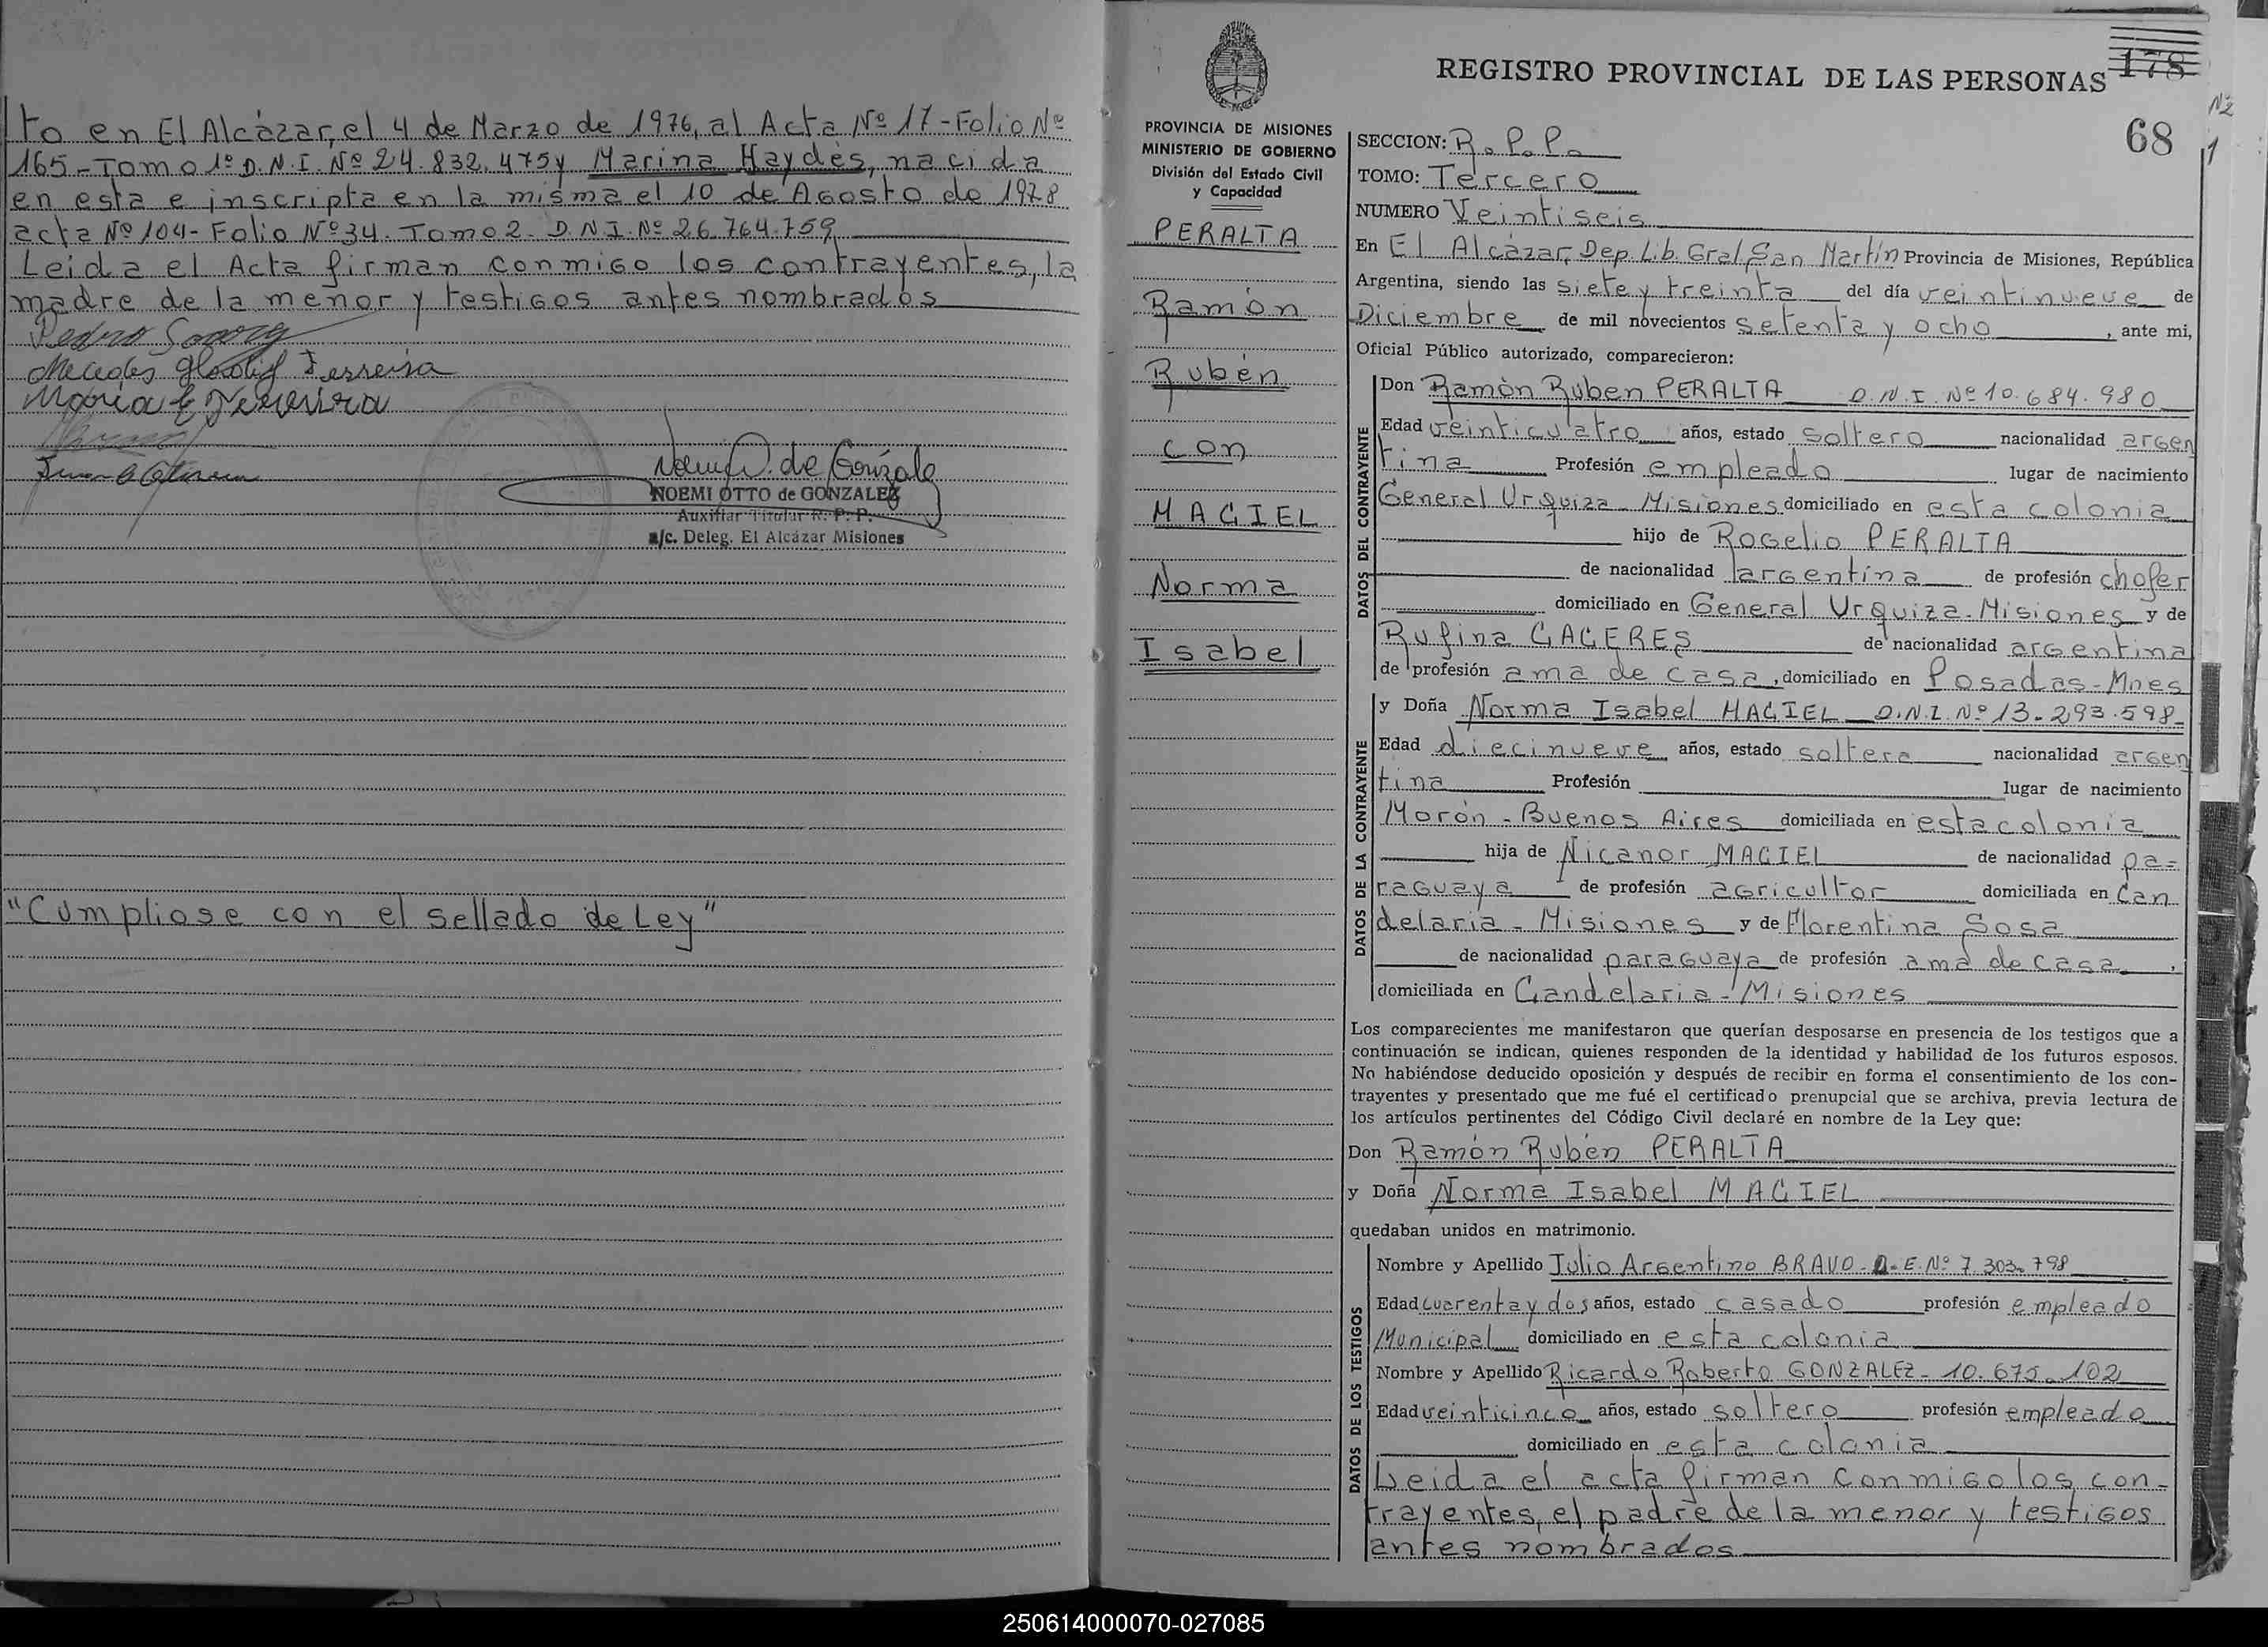 to en El Alcázar, el 4 de Marzo de 1976, al Acta Nº 17 - Folio Nº
165 - Tomo 1º D.N.I. Nº 24.832.475 y Marina Haydés, nacida
en esta e inscripta en la misma el 10 de Agosto de 1978
acta Nº 104 - Folio Nº 34. Tomo 2. D.N.I. Nº 26.764.759
Leida el Acta firman conmigo los contrayentes, la
madre de la menor y testigos antes nombrados
Mercedes Ferreira
NOEMI OTTO de GONZALEZ
Auxiliar Titular R. P. P.
a/c. Deleg. El Alcázar Misiones
"Cumpliose con el sellado de Ley"
REGISTRO PROVINCIAL DE LAS PERSONAS
178
68
PROVINCIA DE MISIONES
MINISTERIO DE GOBIERNO
División del Estado Civil
y Capacidad
PERALTA
Ramón
Rubén
con
MACIEL
Norma
Isabel
SECCION: R.P.P.
TOMO: Tercero
NUMERO Veintiseis
En El Alcázar, Dep. Lib. Gral. San Martín Provincia de Misiones, República
Argentina, siendo las siete y treinta del día veintinueve de
Diciembre de mil novecientos setenta y ocho, ante mi,
Oficial Público autorizado, comparecieron:
DATOS DEL CONTRAYENTE
Don Ramón Ruben PERALTA D.N.I. Nº 10.684.980
Edad veinticuatro años, estado soltero nacionalidad argen
tina Profesión empleado lugar de nacimiento
General Urquiza - Misiones domiciliado en esta colonia
hijo de Rogelio PERALTA
de nacionalidad argentina de profesión chofer
domiciliado en General Urquiza - Misiones y de
Rufina CACERES de nacionalidad argentina
de profesión ama de casa, domiciliado en Posadas - Mnes
DATOS DE LA CONTRAYENTE
y Doña Norma Isabel MACIEL D.N.I. Nº 13.293.598-
Edad diecinueve años, estado soltera nacionalidad argen
tina Profesión lugar de nacimiento
Morón - Buenos Aires domiciliada en esta colonia
hija de Nicanor MACIEL de nacionalidad pa=
raguaya de profesión agricultor domiciliada en Can
delaria - Misiones y de Florentina Sosa
de nacionalidad paraguaya de profesión ama de casa,
domiciliada en Candelaria - Misiones
Los comparecientes me manifestaron que querían desposarse en presencia de los testigos que a
continuación se indican, quienes responden de la identidad y habilidad de los futuros esposos.
No habiéndose deducido oposición y después de recibir en forma el consentimiento de los con-
trayentes y presentado que me fué el certificado prenupcial que se archiva, previa lectura de
los artículos pertinentes del Código Civil declaré en nombre de la Ley que:
Don Ramón Rubén PERALTA
y Doña Norma Isabel MACIEL
quedaban unidos en matrimonio.
DATOS DE LOS TESTIGOS
Nombre y Apellido Julio Argentino BRAVO - D.E. Nº 7.303.798
Edad cuarenta y dos años, estado casado profesión empleado
Municipal domiciliado en esta colonia
Nombre y Apellido Ricardo Roberto GONZALEZ - 10.675.102
Edad veinticinco años, estado soltero profesión empleado
domiciliado en esta colonia
Leida el acta firman conmigo los con-
trayentes, el padre de la menor y testigos
antes nombrados
250614000070-027085